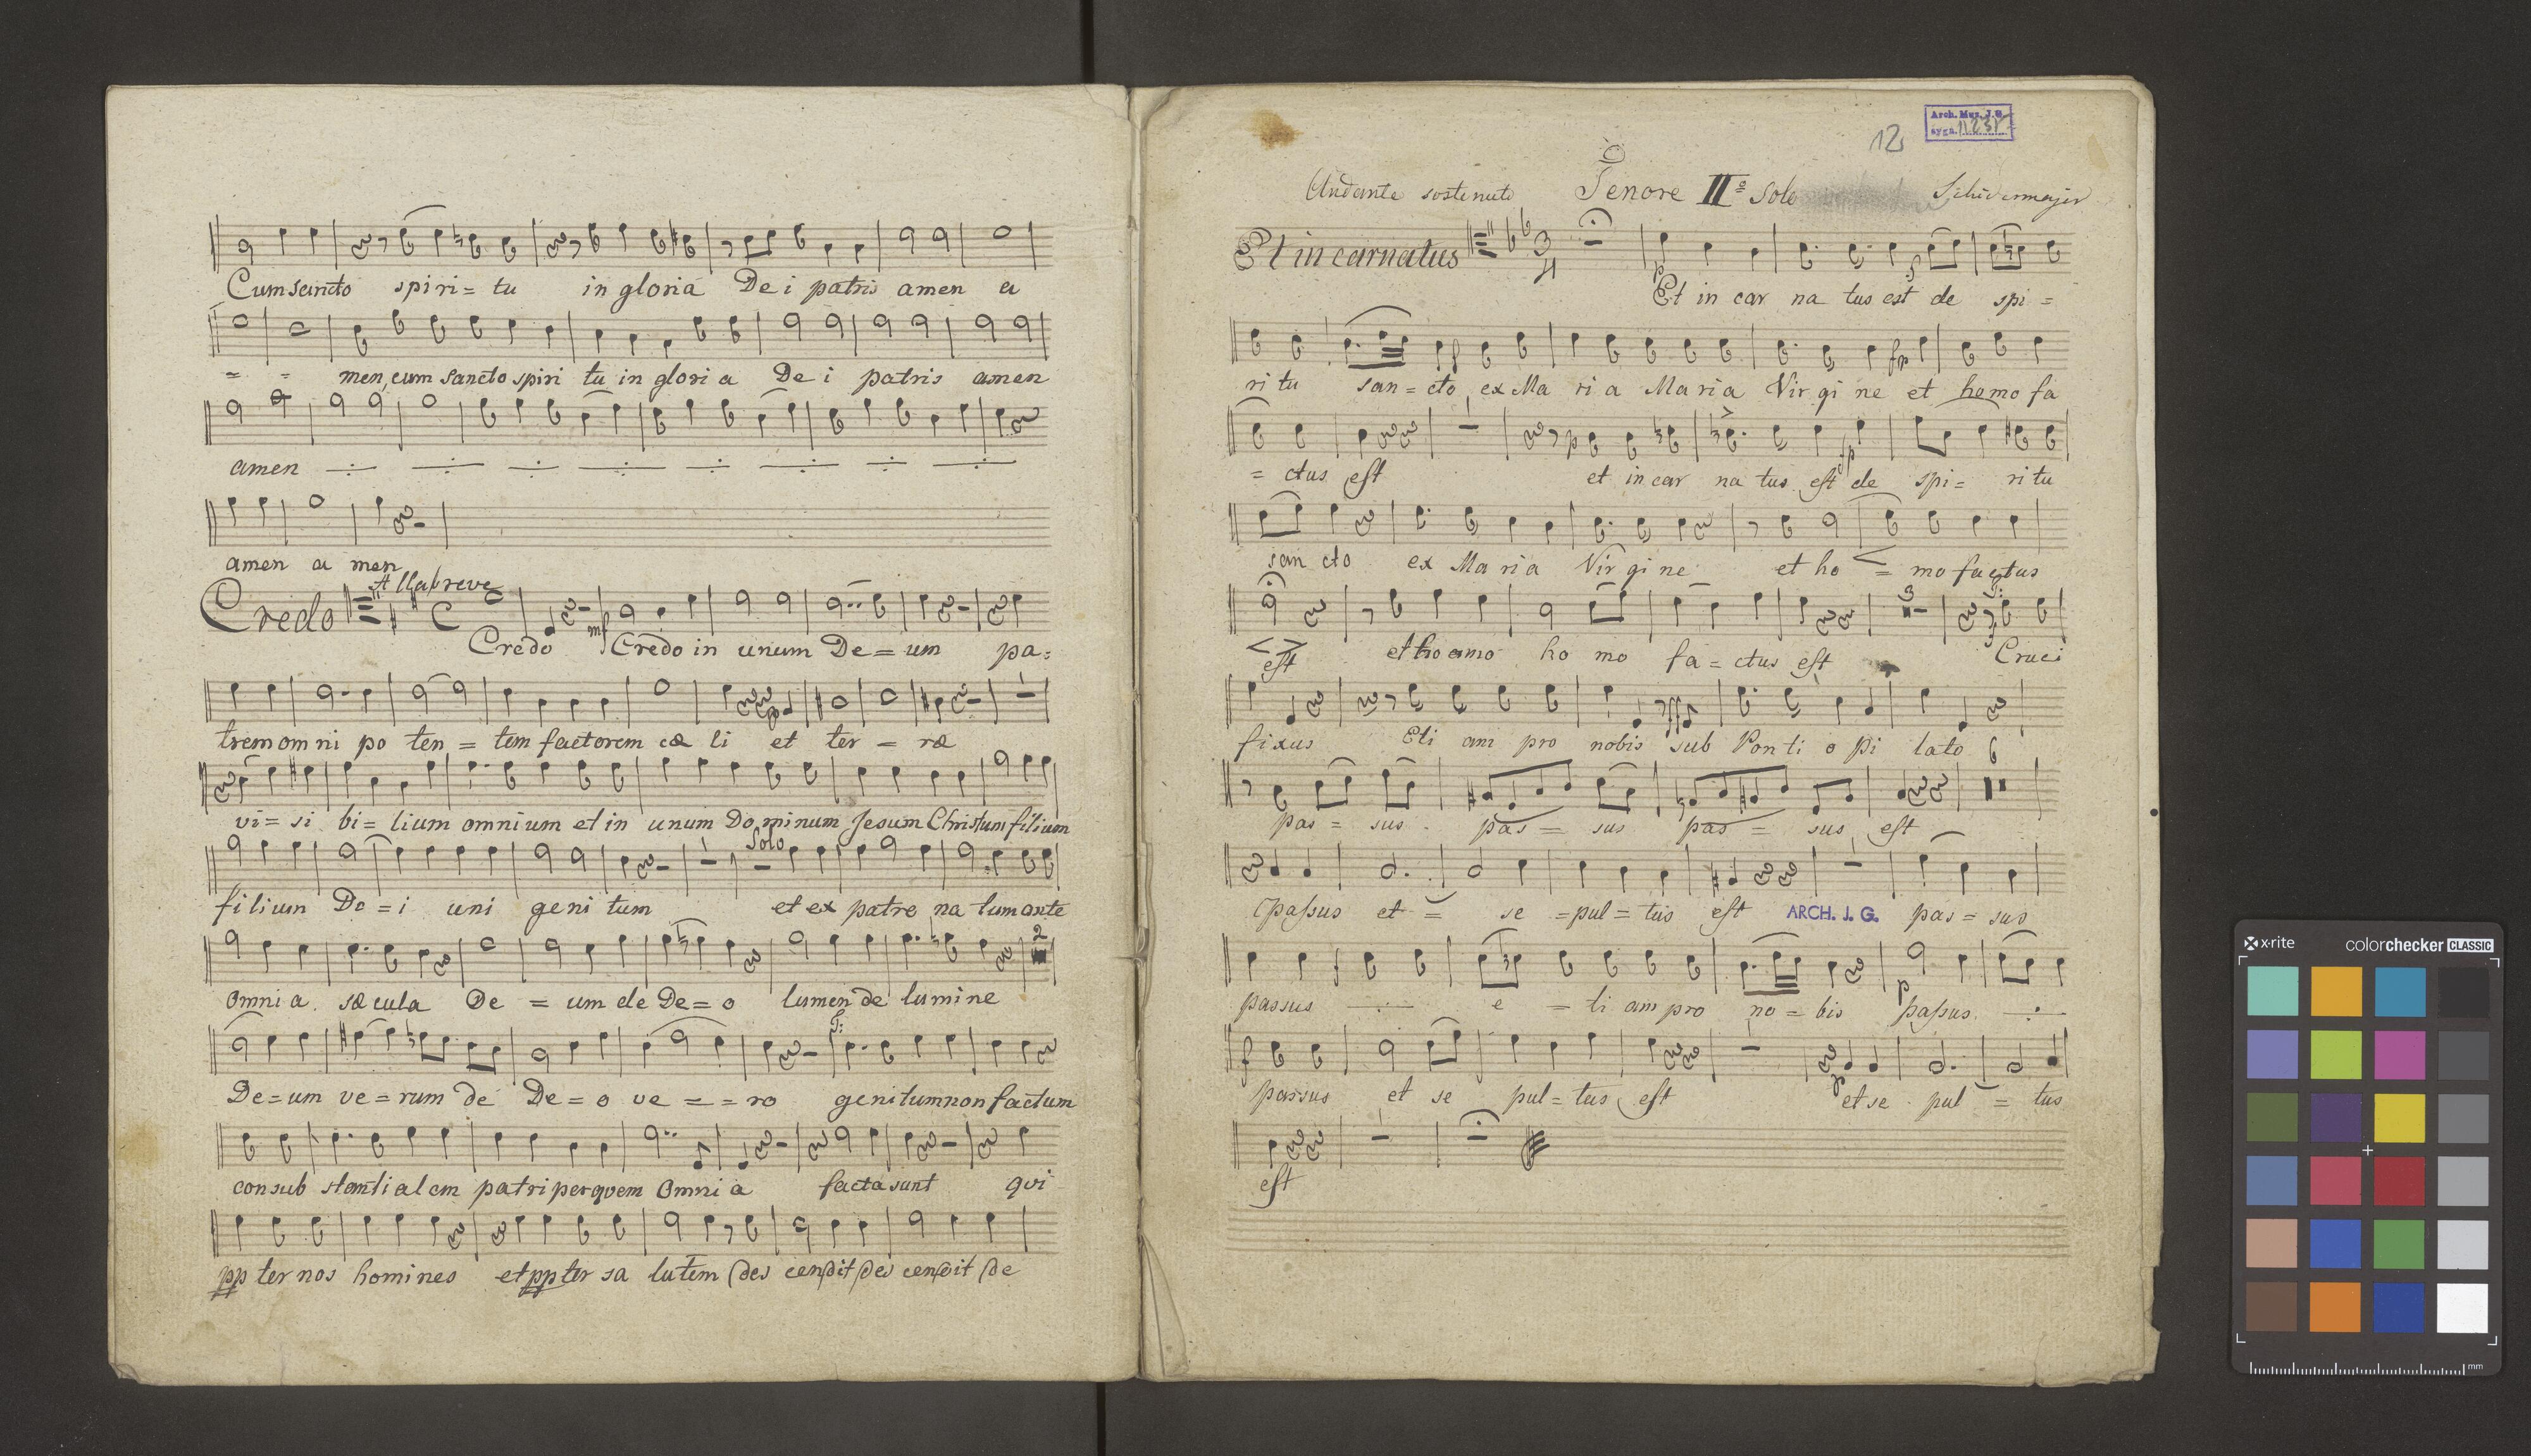 Cum sancto spiri = tu in gloria De i patris amen a
= = men, cum sancto spiri tu in glori a De i patris amen
amen
amen a men
Allabreve
Credo C
Credo mf Credo in unum De = um pa =
trem omni po ten = tem factorem cæ li et ter = ræ
vi = si bi = lium omnium et in unum Dominum Jesum Christum filium
Solo
filium De = i uni geni tum et ex patre na tum ante
2
omni a sæcula De = um de De = o lumen de lumine
De = um ve = rum de De = o ve = = ro genitum non factum
con sub stanti alem patri per quem omni a facta sunt qui
pp ter nos homines et pp ter sa lutem des cendit des cendit de
12
Arch. Muz. J. G.
sygn.
Andante sostenuto Tenore IIº Solo Schiedermajer
Et incarnatus 3 4
p Et in car na tus est de spi =
ri tu san = cto, ex Ma ri a Maria Vir gi ne et homo fa
= ctus est et incar na tus est de spi = ri tu
san cto ex Ma ria Vir gi ne et ho = mo factus
3
est et ho mo ho mo fa = ctus est Cruci
fixus Eti am pro nobis sub Ponti o Pi lato 6
pas = sus pas = sus pas = sus est
passus et = se = pul = tus est ARCH. J. G. pas = sus
passus e = ti am pro no = bis passus
passus et se pul = tus est et se pul = tus
est
x-rite colorchecker CLASSIC
mm